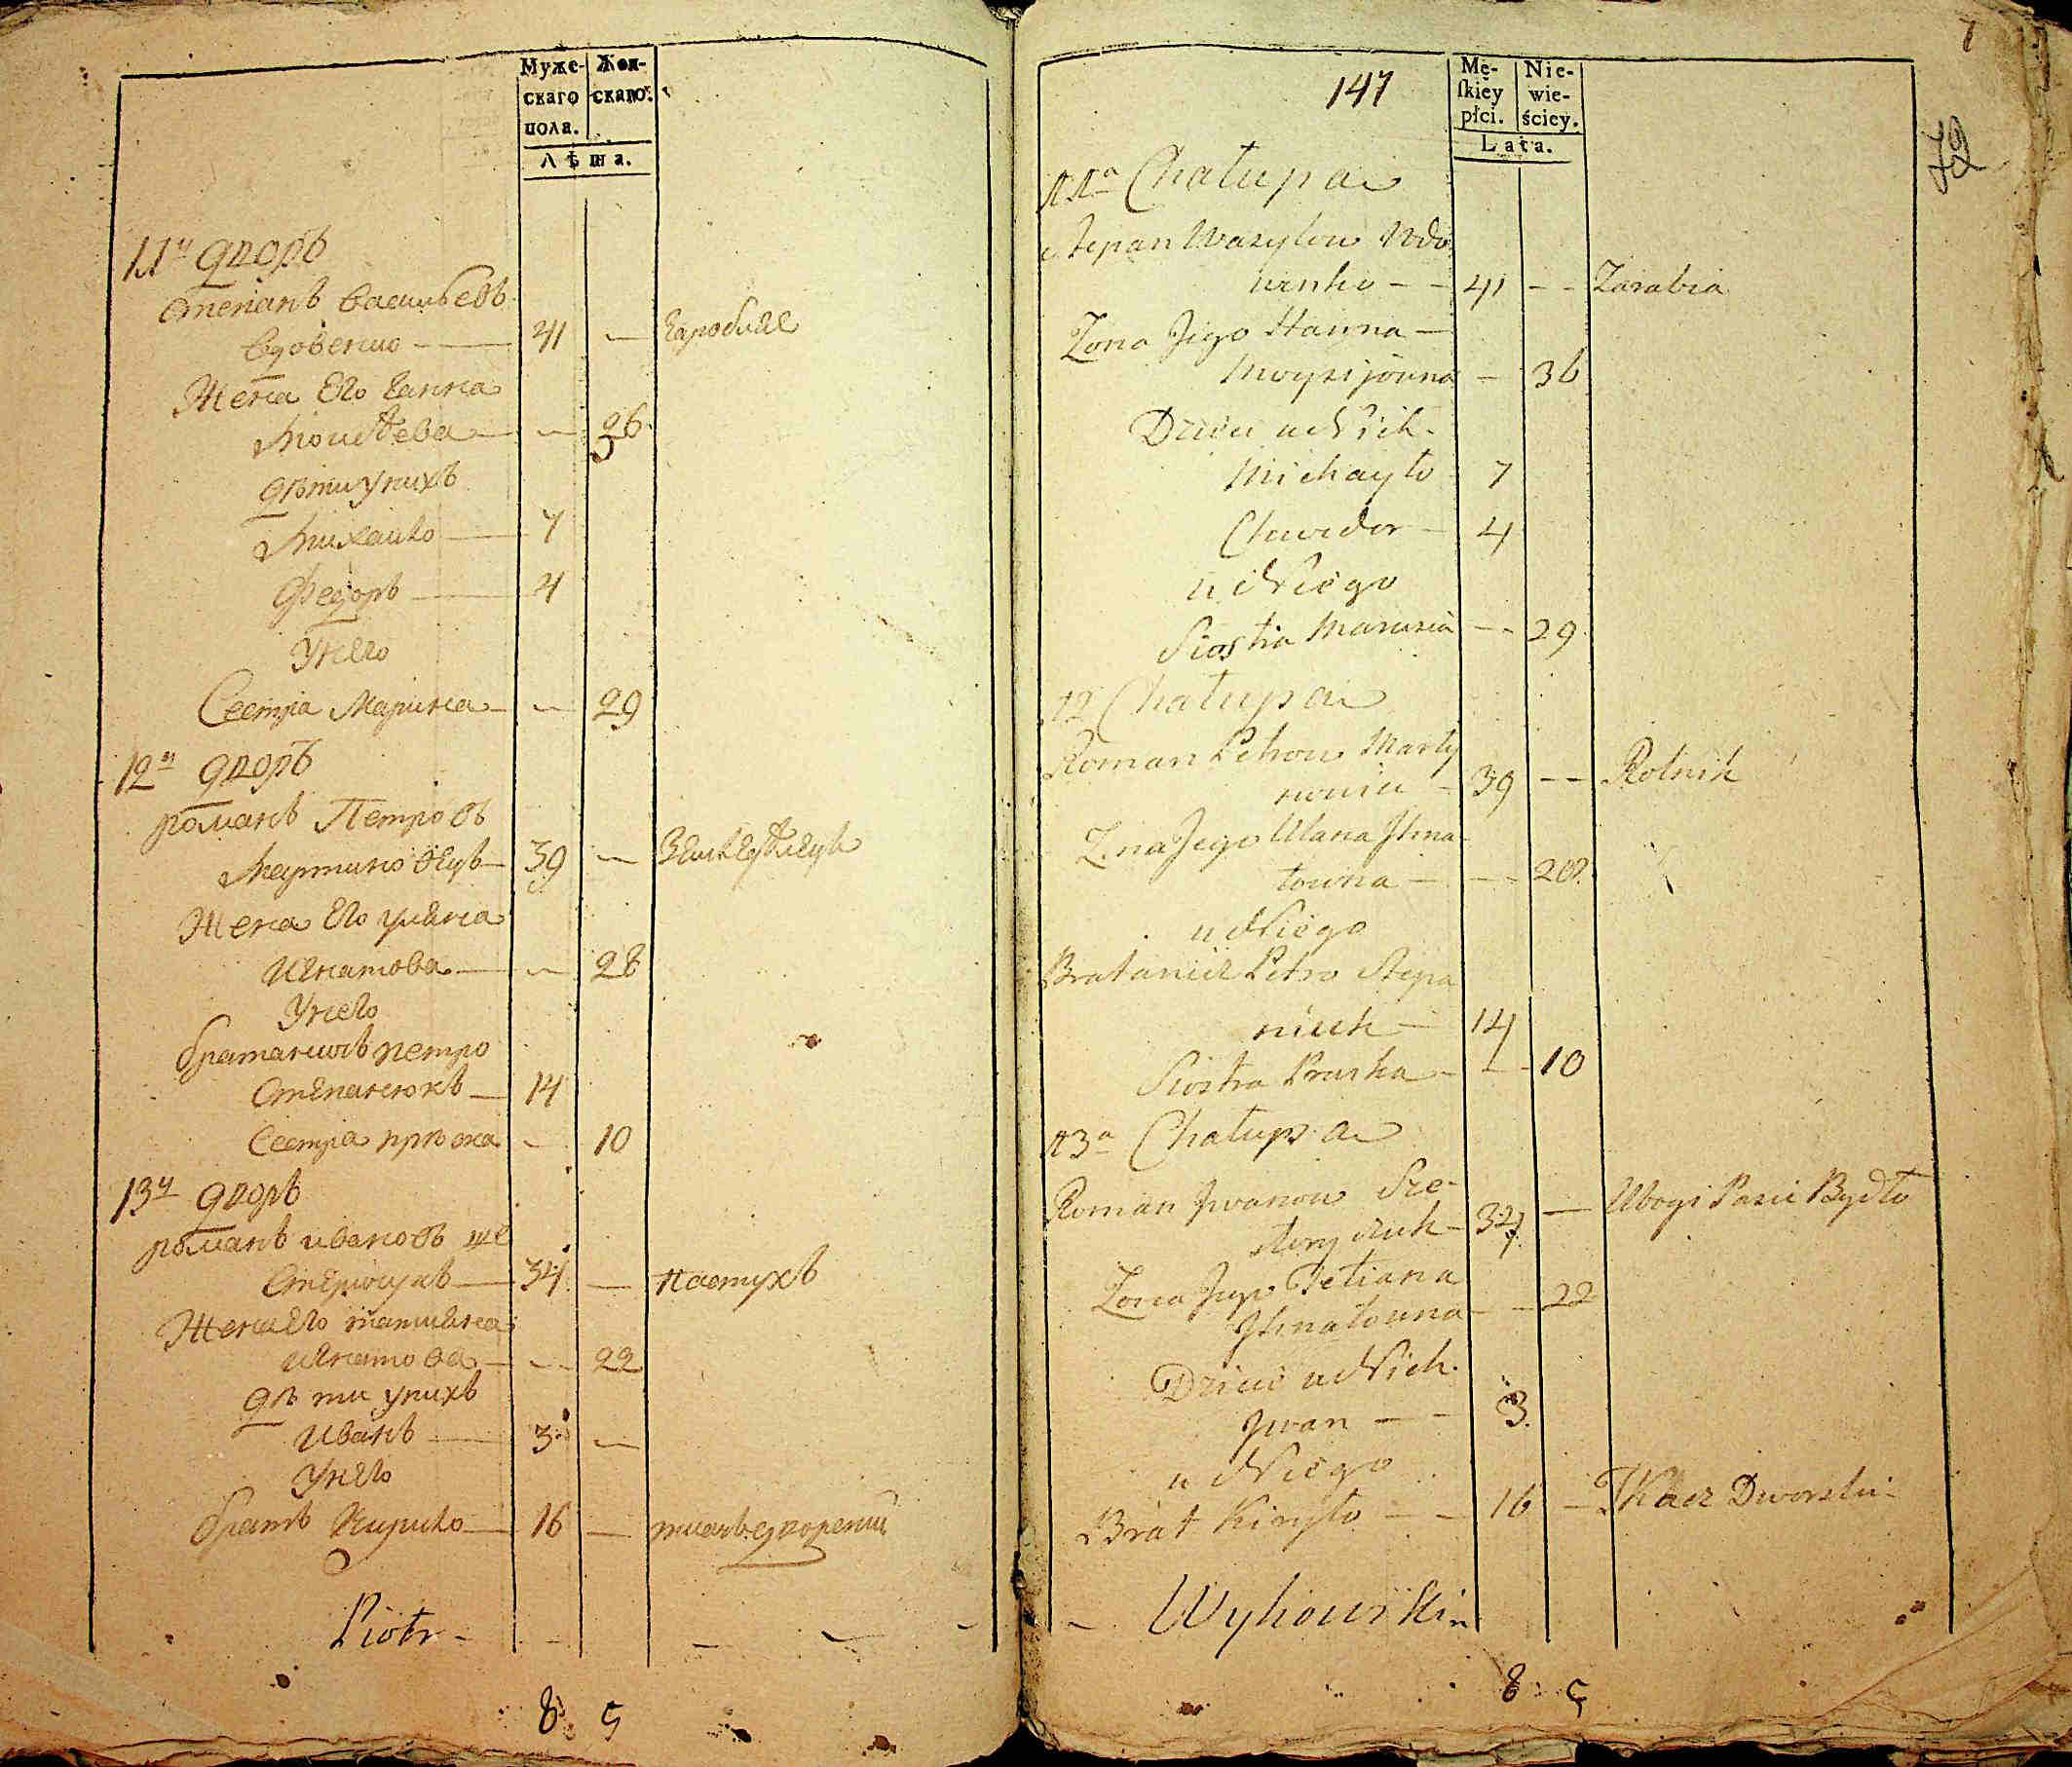 Муже-
скаго
пола.
Жен-
скаго.
Лѣта.
11й дворъ
Степанъ Васильевъ
Вдовенко — 41 —
Жена Его Ганна
Моисѣева — — 36
дѣти у нихъ
Михайло — 7
Федоръ — 4
У него
Сестра Марина — — 29
12й дворъ
романъ Петровъ
Мартиновецъ — 39 —
Жена Его уляна
Игнатова — — 28
У него
братаничъ петро
Степанюкъ — 14
Сестра пріська — 10
13й дворъ
романъ ивановъ ше
34 — пастухъ
Жена Его татияна
игнатова — — 22
дѣти у нихъ
Иванъ — 3 —
У него
братъ Кирило — 16 — ткачъ дворскій
Piotr -
8 5
7
147
79
Mę-
skiey
płci.
Nie-
wie-
ściey.
Lata.
11a Chałupa
Stepan Wasylow Wdo
wenko - - 41 - - Zarabia
Zona Jego Hanna —
Moysijowna - 36
Dzieci u Nich.
Michayło 7
Chwedor - 4
u Niego
Siostra Marusia - - 29
12 Chałupa
Roman Petrow Marty
nowiec - 39 - - Rolnik
Zona Jego Ulana Ihna
towna - - - 28
u Niego
Bratanicz Petro Stepa
niuk — 14
Siostra Pruska - - - 10
13a Chałupa
Roman Jwanow Sze-
34 — Ubogi Pasie Bydło
Zona Jego Tetiana
Ihnatowna - - 22
Dzieci u Nich.
Jwan - - 3.
u Niego
Brat Kiryło - - 16 - Tkacz Dworski -
- Wyhowski
8 5